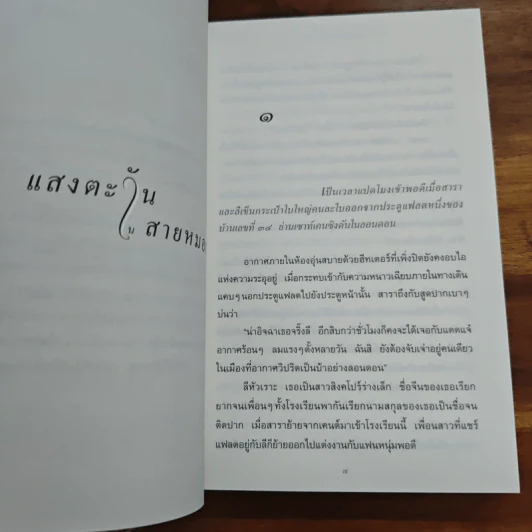 แสงตะวัน
ใน
สายหมอก
๑
เป็นเวลาแปดโมงเช้าพอดีเมื่อสารา
และลีเข็นกระเป๋าใบใหญ่คนละใบออกจากประตูแฟลตหนึ่งของ
บ้านเลขที่ ๓๔ ย่านเซาท์เคนซิงตันในลอนดอน
อากาศภายในห้องอุ่นสบายด้วยฮีทเตอร์ที่เพิ่งปิดยังคงอบไอ
แห่งความระอุอยู่ เมื่อกระทบเข้ากับความหนาวเฉียบภายในทางเดิน
แคบๆนอกประตูแฟลตไปยังประตูหน้านั้น สาราถึงกับสูดปากเบาๆ
บ่นว่า
“น่าอิจฉาเธอจริ๊งลี อีกสิบกว่าชั่วโมงก็คงจะได้เจอกับแดดแจ๋
อากาศร้อนๆ ลมแรงๆตั้งหลายวัน ฉันสิ ยังต้องจับเจ่าอยู่คนเดียว
ในเมืองที่อากาศวิปริตเป็นบ้าอย่างลอนดอน”
ลีหัวเราะ เธอเป็นสาวสิงคโปร์ร่างเล็ก ชื่อจีนของเธอเรียก
ยากจนเพื่อนๆทั้งโรงเรียนพากันเรียกนามสกุลของเธอเป็นชื่อจน
ติดปาก เมื่อสาราย้ายจากเคนต์มาเข้าโรงเรียนนี้ เพื่อนสาวที่แชร์
แฟลตอยู่กับลีก็ย้ายออกไปแต่งงานกับแฟนหนุ่มพอดี